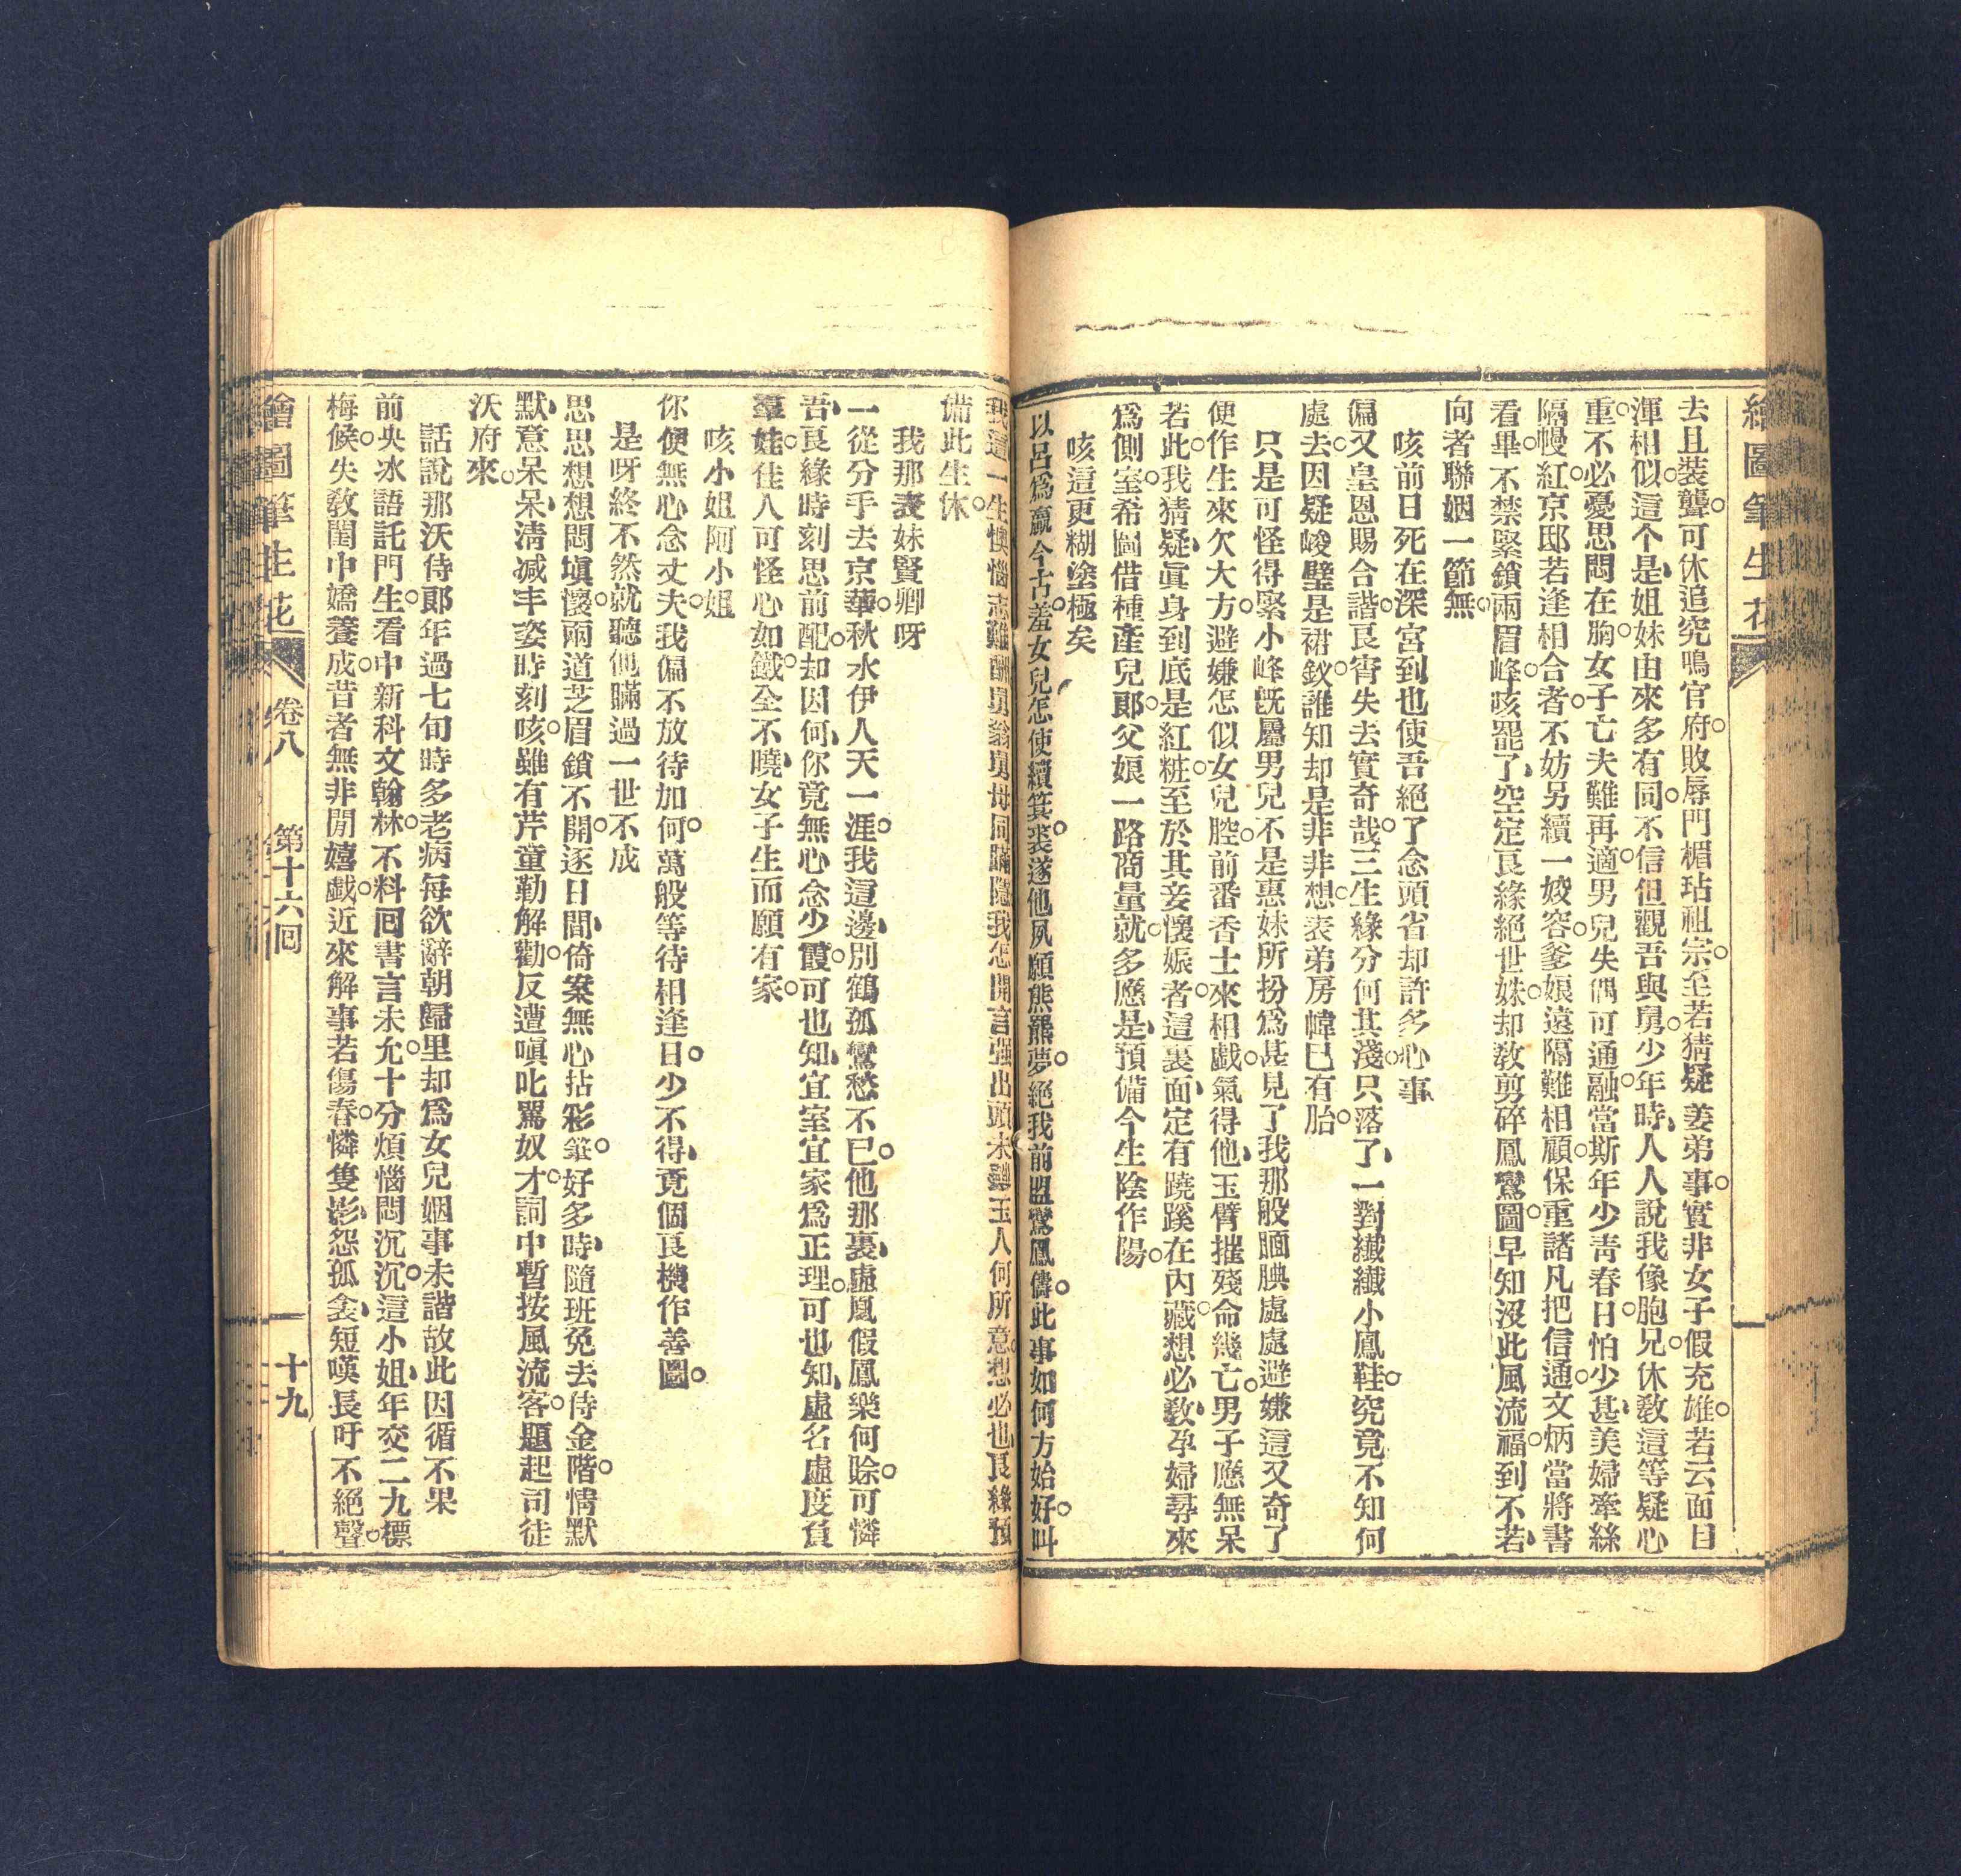 繪圖筆生花
去且裝聾可休追究鳴官府敗辱門楣玷祖宗至若猜疑姜弟事實非女子假充雄若云面目
渾相似這个是姐妹由來多有同不信但觀吾與舅少年時人人說我像胞兄休教這等疑心
重不必憂思悶在胸女子亡夫難再適男兒失偶可通融當斯年少靑春日怕少甚美婦牽絲
隔幔紅京邸若逢相合者不妨另續一姣容爹娘遠隔難相顧保重諸凡把信通文炳當將書
看畢不禁緊鎖兩眉峰咳罷了空定良緣絕世姝却教剪碎鳳鸞圖早知沒此風流福到不若
向者聯姻一節無
咳前日死在深宮到也使吾絕了念頭省却許多心事
偏又皇恩賜合諧良宵失去實奇哉三生緣分何其淺只落了一對纖纖小鳳鞋究竟不知何
處去因疑峻壁是裙釵誰知却是非非想表弟房幃已有胎
只是可怪得緊小峰旣屬男兒不是惠妹所扮爲甚見了我那般腼腆處處避嫌這又奇了
使作生來欠大方避嫌怎似女兒腔前番香士來相戲氣得他玉臂摧殘命幾亡男子應無呆
若此我猜疑眞身到底是紅粧至於其妾懷娠者這裏面定有蹺蹊在內藏想必教孕婦尋來
爲側室希圖借種產兒郞父娘一路商量就多應是預備今生陰作陽
咳這更糊塗極矣
以呂爲嬴今古羞女兒怎使續箕裘遂他夙願熊羆夢絕我前盟鸞鳳儔此事如何方始好叫
我這一生懊惱志難酬舅翁舅母同瞞隱我怎開言强出頭未對玉人何所意想必也良緣預
備此生休
我那表妹賢卿呀
一從分手去京華秋水伊人天一涯我這邊別鶴孤鸞愁不已他那裏虛鳳假鳳樂何賒可憐
吾良緣時刻思前配却因何你竟無心念少霞可也知宜室宜家爲正理可也知虛名虛度負
羣娃佳人可怪心如鐵全不曉女子生而願有家
咳小姐阿小姐
你便無心念丈夫我偏不放待加何萬般等待相逢日少不得竟個良機作善圖
是呀終不然就聽他瞞過一世不成
思思想想悶塡懷兩道芝眉鎖不開逐日間倚案無心拈彩筆好多時隨班免去侍金階情默
默意呆呆淸减丰姿時刻咳雖有芹童勤解勸反遭嗔叱罵奴才詞中暫按風流客題起司徒
沃府來
話說那沃侍郞年過七旬時多老病每欲辭朝歸里却爲女兒姻事未諧故此因循不果
前央冰語託門生看中新科文翰林不料回書言未允十分煩惱悶沉沉這小姐年交二九標
梅候失敎閨中嬌養成昔者無非閒嬉戲近來解事若傷春憐隻影怨孤衾短嘆長吁不絕聲
繪圖筆生花 卷八 第十六回 十九